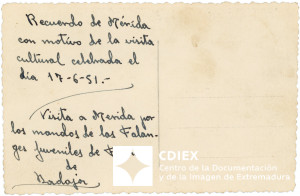 Recuerdo de Mérida
con motivo de la visita
cultural celebrada el
día 17-6-51.-
Visita a Merida por
los mandos de las Falan-
ges juveniles de
de
Badajoz
CDIEX
Centro de la Documentación
y de la Imagen de Extremadura